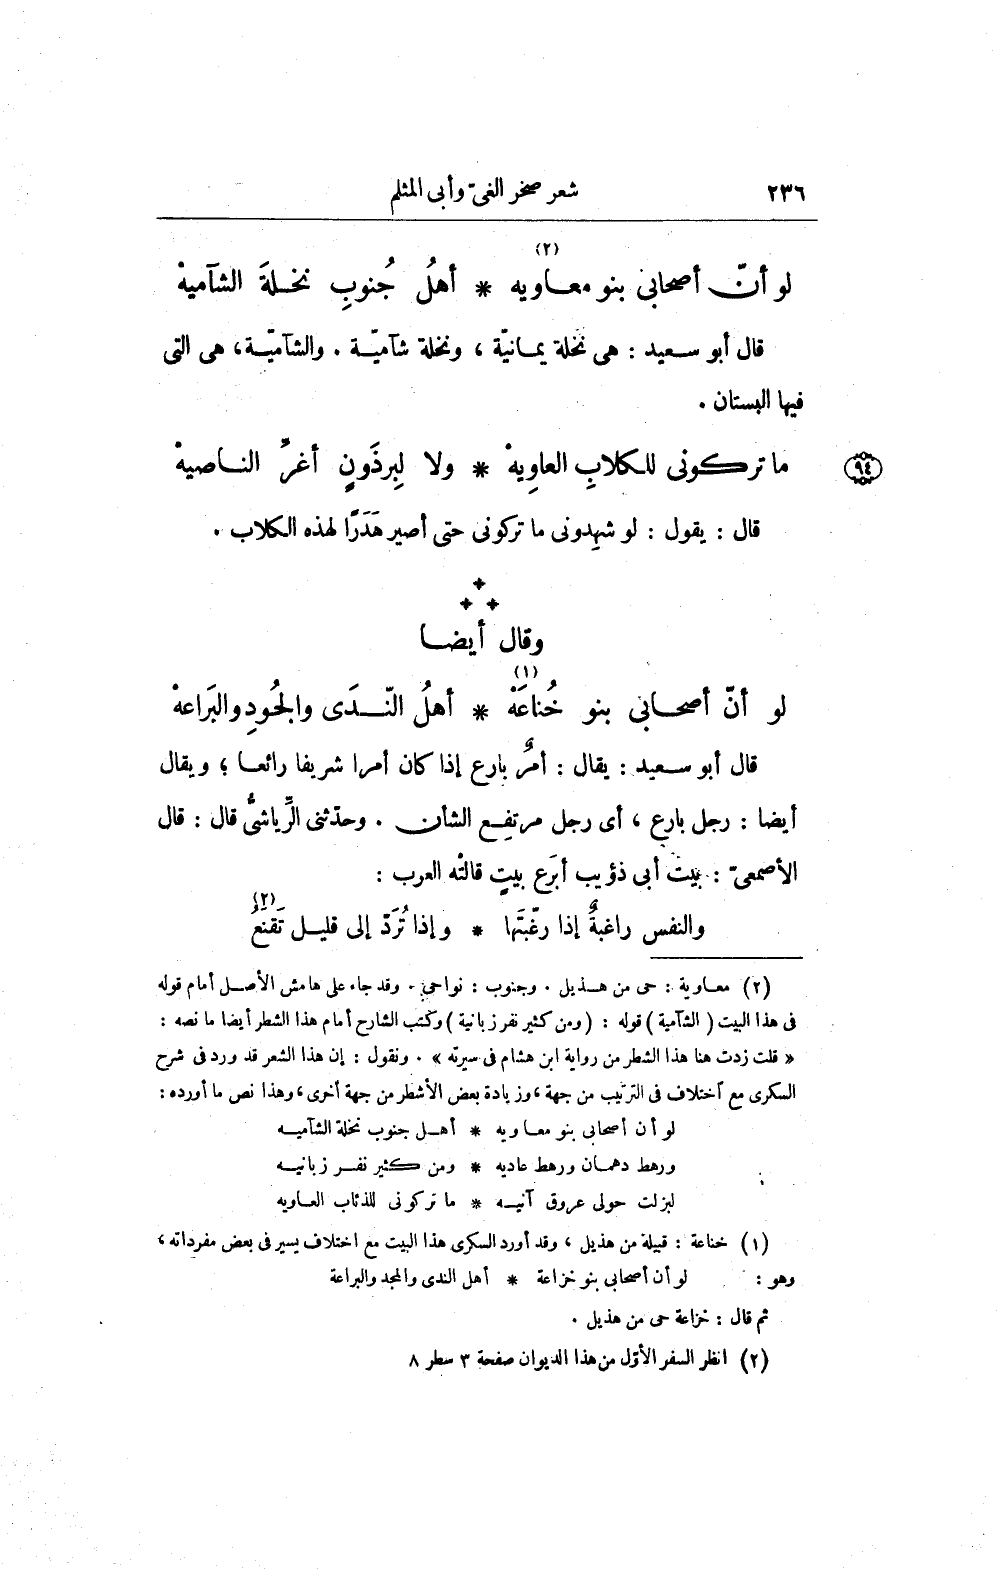 ٢٣٦ شعر صخر الغىّ وأبى المثلم
(٢)
لو أنّ أصحابى بنو معاويه * أهلُ جُنوبِ نخلةَ الشآميهْ
قال أبو سعيد : هى نَخلة يمانيّة ، ونخلة شآميّة . والشآميّة، هى التى
فيها البستان .
ما تركونى للكلابِ العاوِيهْ * ولا لِبرذَونٍ أغرِّ الناصيهْ
٩٤
قال : يقول : لو شهِدونى ما تركونى حتى أصير هَدَرًا لهذه الكلاب .
وقال أيضا
(١)
لو أنّ أصحابى بنو خُناعَهْ * أهلُ النّدَى والجُودِ والبَراعهْ
قال أبو سعيد : يقال : أمرٌ بارع إذا كان أمرا شريفا رائعا ؛ ويقال
أيضا : رجل بارع ، أى رجل مرتفِع الشأن . وحدّثنى الرِّياشىُّ قال : قال
الأصمعىّ : بيت أبى ذؤيب أبرَع بيتٍ قالتْه العرب :
(٢)
والنفس راغبةٌ إذا رغّبتَها * وإذا تُرَدّ إلى قليل تَقنَعُ
(٢) معاوية : حى من هذيل . وجنوب : نواحى . وقد جاء على هامش الأصل أمام قوله
فى هذا البيت ( الشآمية ) قوله : ( ومن كثير نفر زبانية ) وكتب الشارح أمام هذا الشطر أيضا ما نصه :
« قلت زدت هنا هذا الشطر من رواية ابن هشام فى سيرته » . ونقول : إن هذا الشعر قد ورد فى شرح
السكرى مع آختلاف فى الترتيب من جهة ، وزيادة بعض الأشطر من جهة أخرى ، وهذا نص ما أورده :
لو أن أصحابى بنو معاويه * أهل جنوب نخلة الشآميه
ورهط دهمان ورهط عاديه * ومن كثير نفر زبانيه
لبزلت حولى عروق آنيه * ما تركونى للذئاب العاويه
(١) خناعة : قبيلة من هذيل ، وقد أورد السكرى هذا البيت مع اختلاف يسير فى بعض مفرداته ،
وهو : لو أن أصحابى بنو خزاعة * أهل الندى والمجد والبراعة
ثم قال : خزاعة حى من هذيل .
(٢) انظر السفر الأوّل من هذا الديوان صفحة ٣ سطر ٨